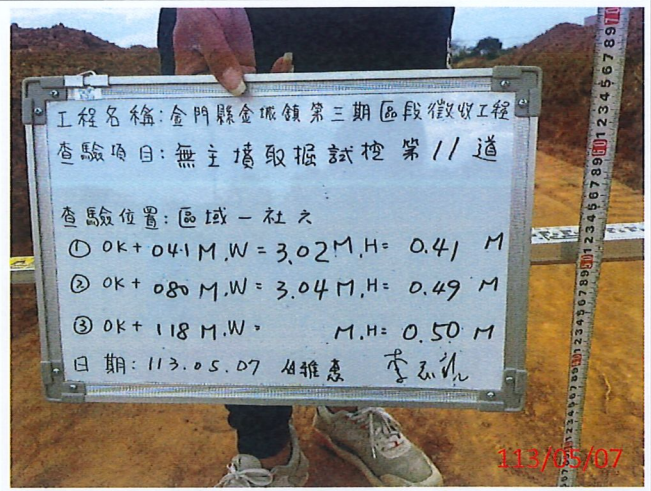 工程名稱:金門縣金城鎮第三期區段徵收工程
查驗項目:無主墳取掘試挖 第11道
查驗位置:區域一社六
① 0K+041M.W=3.02M.H=0.41M
② 0K+080M.W=3.04M.H=0.49M
③ 0K+118M.W= M.H=0.50M
日期:113.05.07
113/05/07